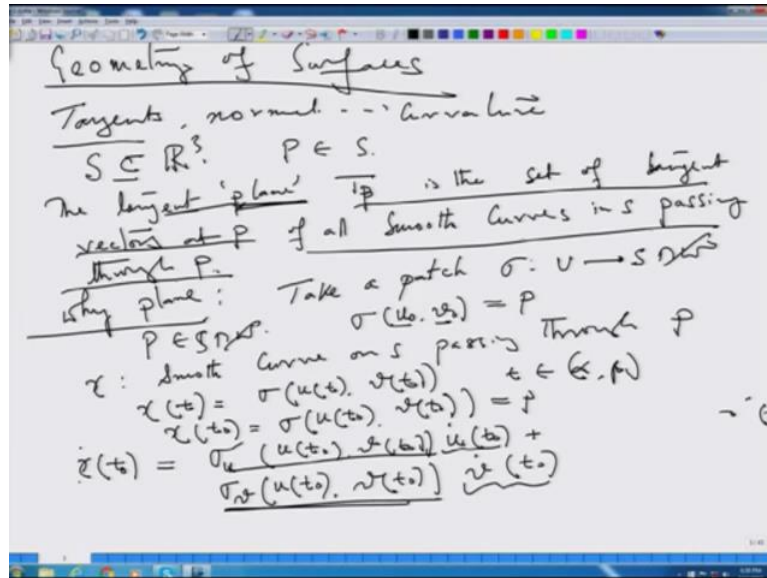 Geometry of Surfaces
Tangents, normal --- Curvature
S ⊆ ℝ³. P ∈ S.
The tangent 'plane' Tp is the set of tangent
vectors at P of all Smooth Curves in S passing
through P.
Why plane: Take a patch σ: U → S ∩ W
P ∈ S ∩ W. σ(u₀, v₀) = P
γ: Smooth Curve on S passing through P
γ(t) = σ(u(t), v(t)) t ∈ (α, β)
γ(t₀) = σ(u(t₀), v(t₀)) = P
γ̇(t₀) = σᵤ(u(t₀), v(t₀)) u̇(t₀) +
σᵥ(u(t₀), v(t₀)) v̇(t₀)